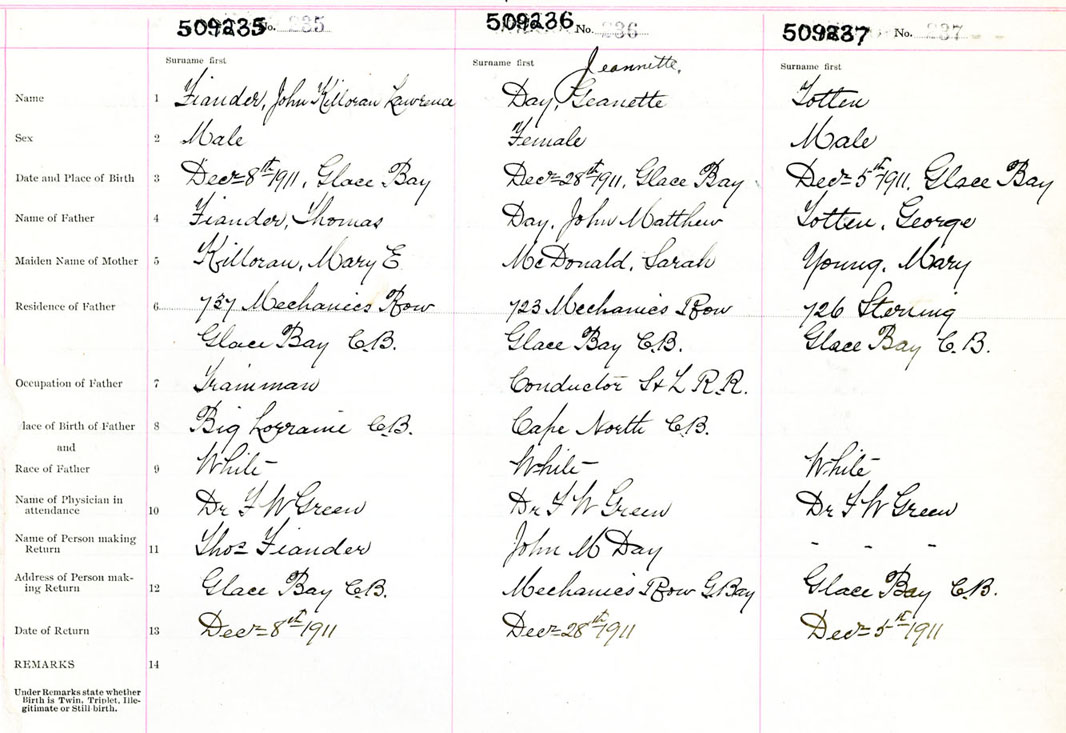 509235 No. 235 509236 No. 236 509237 No. 237
Surname first Surname first Jeannette, Surname first
Name 1 Fiander, John Killoran Lawrence Day, Jeanette Totten
Sex 2 Male Female Male
Date and Place of Birth 3 Decr 8th 1911, Glace Bay Decr 28th 1911, Glace Bay Decr 5th 1911, Glace Bay
Name of Father 4 Fiander, Thomas Day, John Matthew Totten, George
Maiden Name of Mother 5 Killoran, Mary E McDonald, Sarah Young, Mary
Residence of Father 6 737 Mechanics Row 723 Mechanics Row 726 Sterling
Glace Bay C.B. Glace Bay C.B. Glace Bay C.B.
Occupation of Father 7 Trainman Conductor S & L R.R.
lace of Birth of Father 8 Big Lorraine C.B. Cape North C.B.
and
Race of Father 9 White White White
Name of Physician in
attendance 10 Dr F W Green Dr F W Green Dr F W Green
Name of Person making
Return 11 Thos Fiander John M Day - - -
Address of Person mak-
ing Return 12 Glace Bay C.B. Mechanics Row G. Bay Glace Bay C.B.
Date of Return 13 Decr 8th 1911 Decr 28th 1911 Decr 5th 1911
REMARKS 14
Under Remarks state whether
Birth is Twin, Triplet, Ille-
gitimate or Still birth.